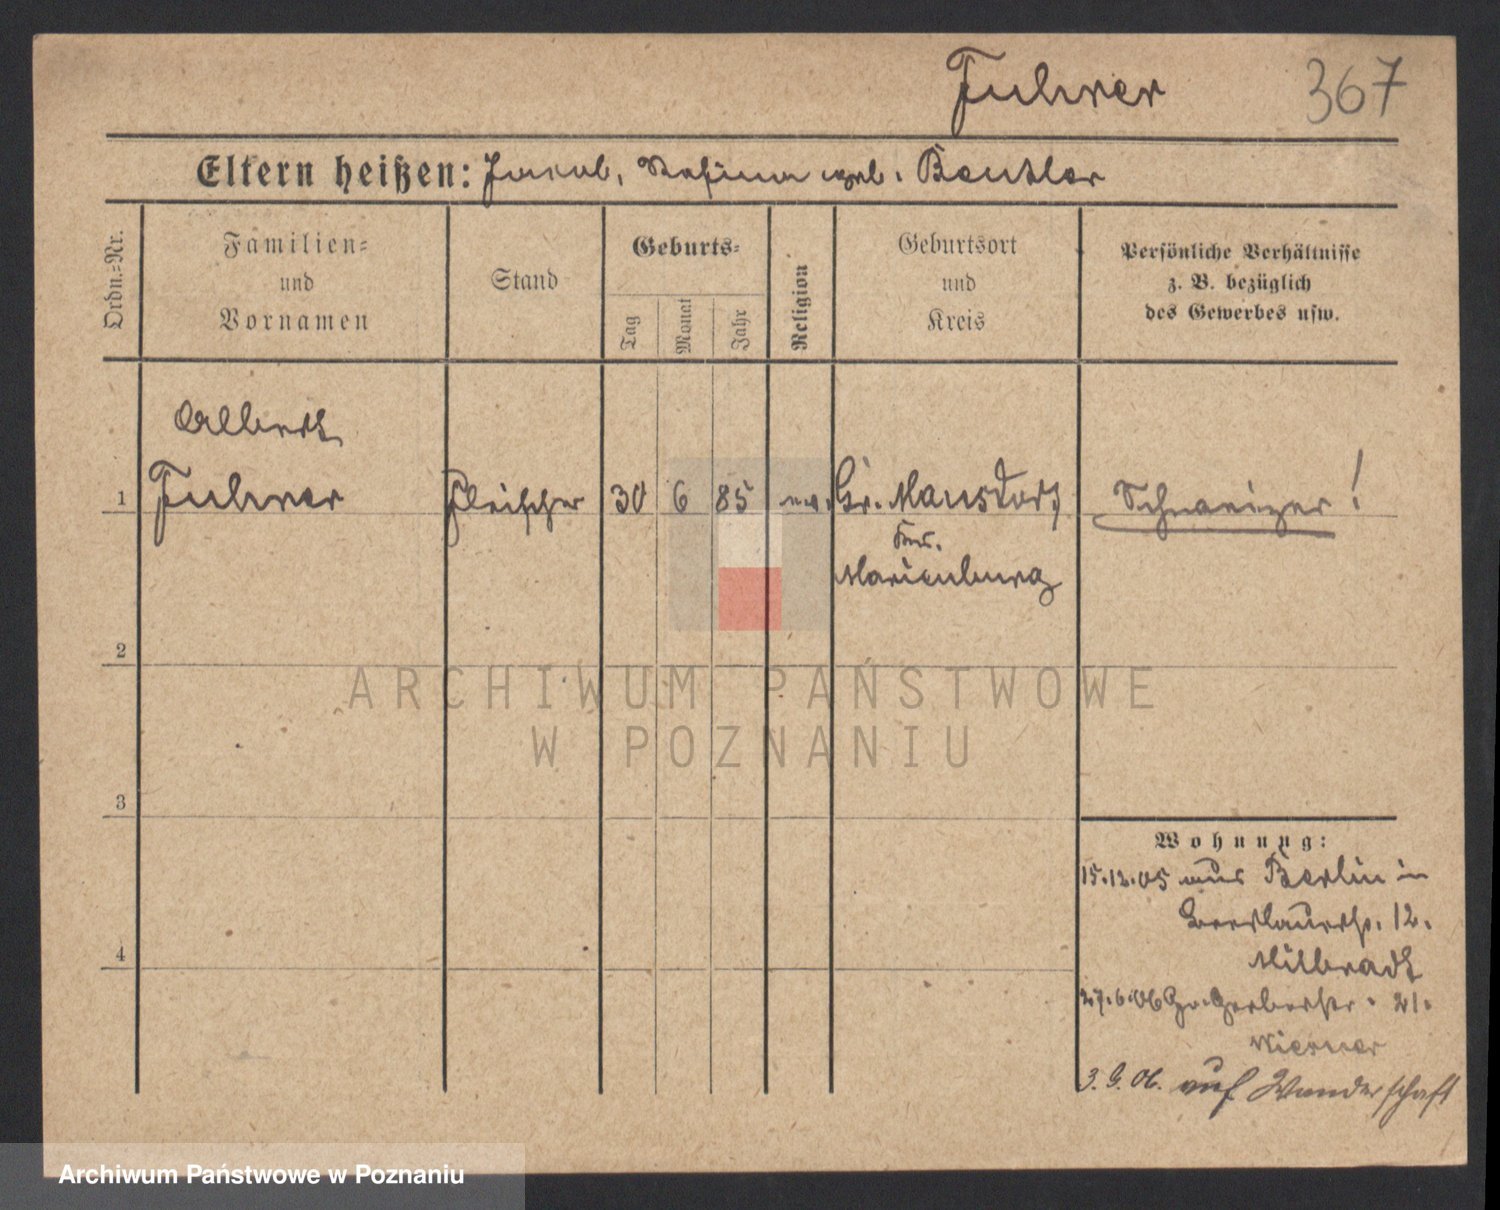 Fuhrer 367
Eltern heißen: Jakob, Rosina geb. Beutler
Ordn.=Nr.
Familien=
und
Vornamen
Stand
Geburts=
Tag
Monat
Jahr
Religion
Geburtsort
und
Kreis
Persönliche Verhältnisse
z. B. bezüglich
des Gewerbes usw.
Albert
1 Fuhrer Fleischer 30 6 85 ev. Gr. Mausdorf Schweizer!
Krs.
Marienburg
2
3
4
ARCHIWUM PAŃSTWOWE
W POZNANIU
Wohnung:
15.12.05 aus Berlin in
12.
Milbradt
27.6.06 Gr. Gerberstr. 21.
Wiesner
3.9.06. auf Wanderschaft
Archiwum Państwowe w Poznaniu